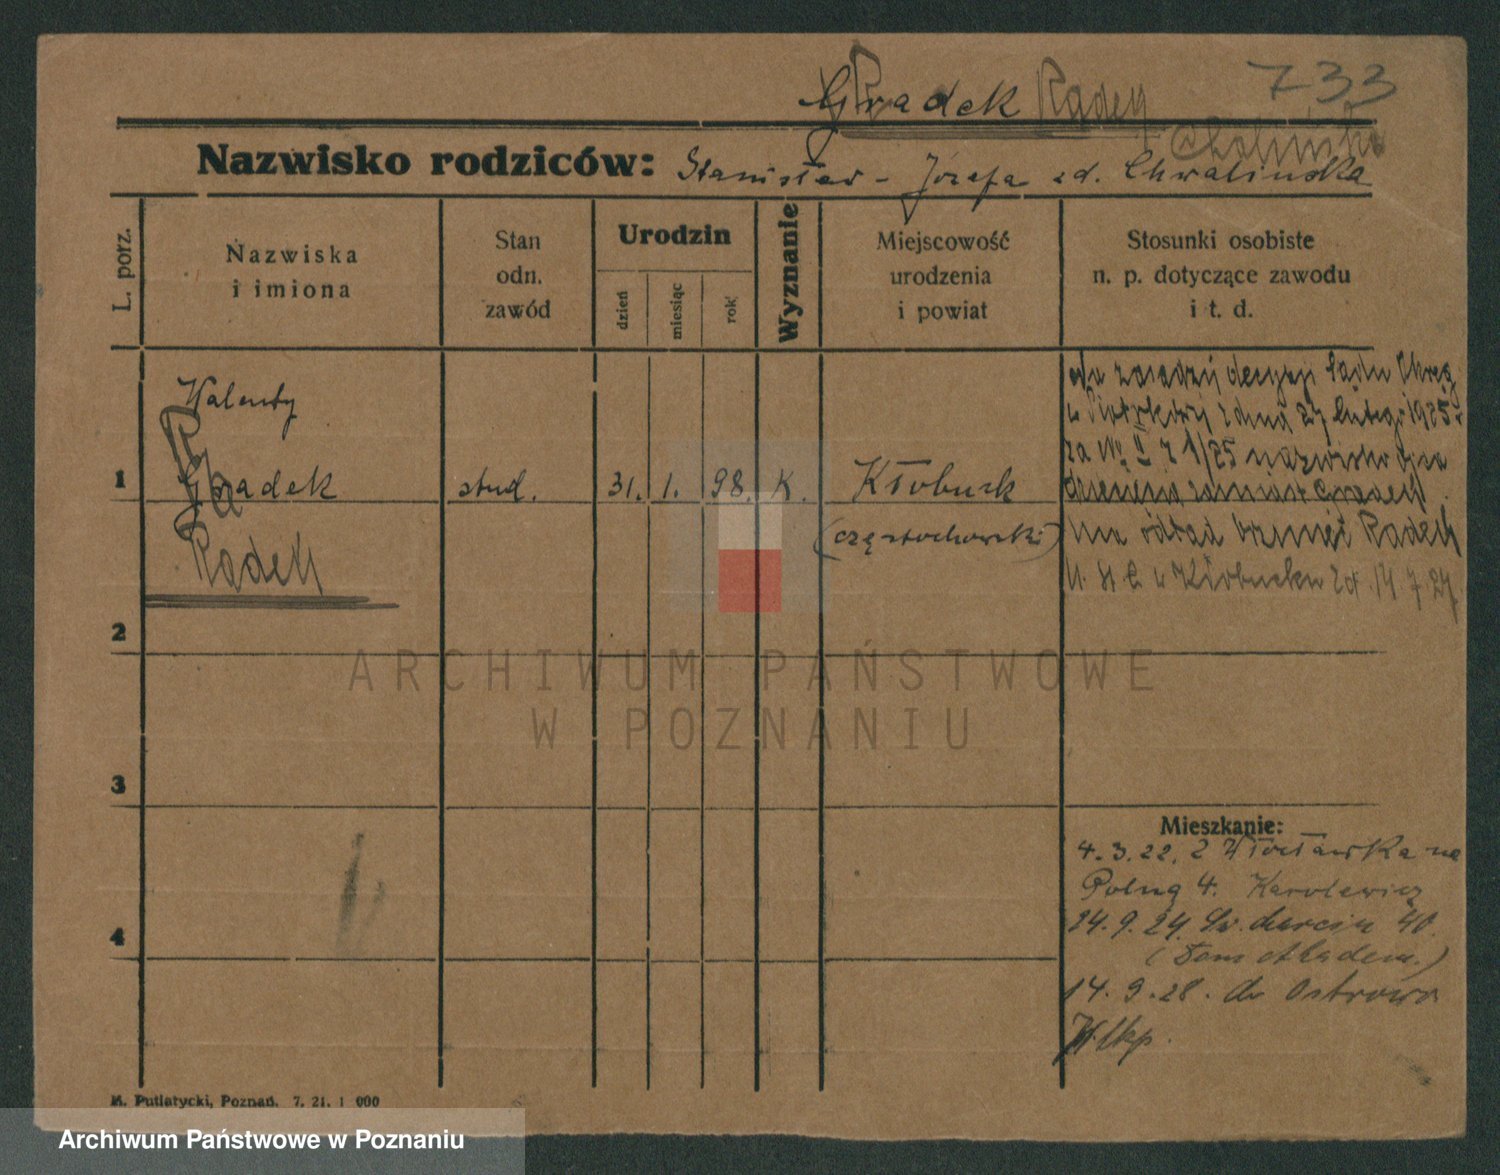 733
Gradek Radek
Nazwisko rodziców: Stanisław - Józefa zd. Chwalińska
L. porz.
Nazwiska
i imiona
Stan
odn.
zawód
Urodzin
dzień
miesiąc
rok
Wyznanie
Miejscowość
urodzenia
i powiat
Stosunki osobiste
n. p. dotyczące zawodu
i t. d.
1
Walenty
Gradek
Radek
stud.
31. 1. 98. K.
Kłobuck
(częstochowski)
Na zasadzie decyzji Sądu Okręg
w Piotrkowie z dnia 27 lutego 1925 r
za No II z 1/25 nazwisko
zamiast Gradek
ma odtąd brzmieć Radek
U. S. C. w Kłobucku zd. 14.7.27.
2
3
4
Mieszkanie:
4.3.22. z Włocławka na
Polną 4. Karolewicz
24.9.24. Św. Marcin 40.
(Dom Akadem.)
14.9.28. do Ostrowa
Wlkp.
M. Putiatycki, Poznań. 7. 21. 1 000
ARCHIWUM PAŃSTWOWE
W POZNANIU
Archiwum Państwowe w Poznaniu